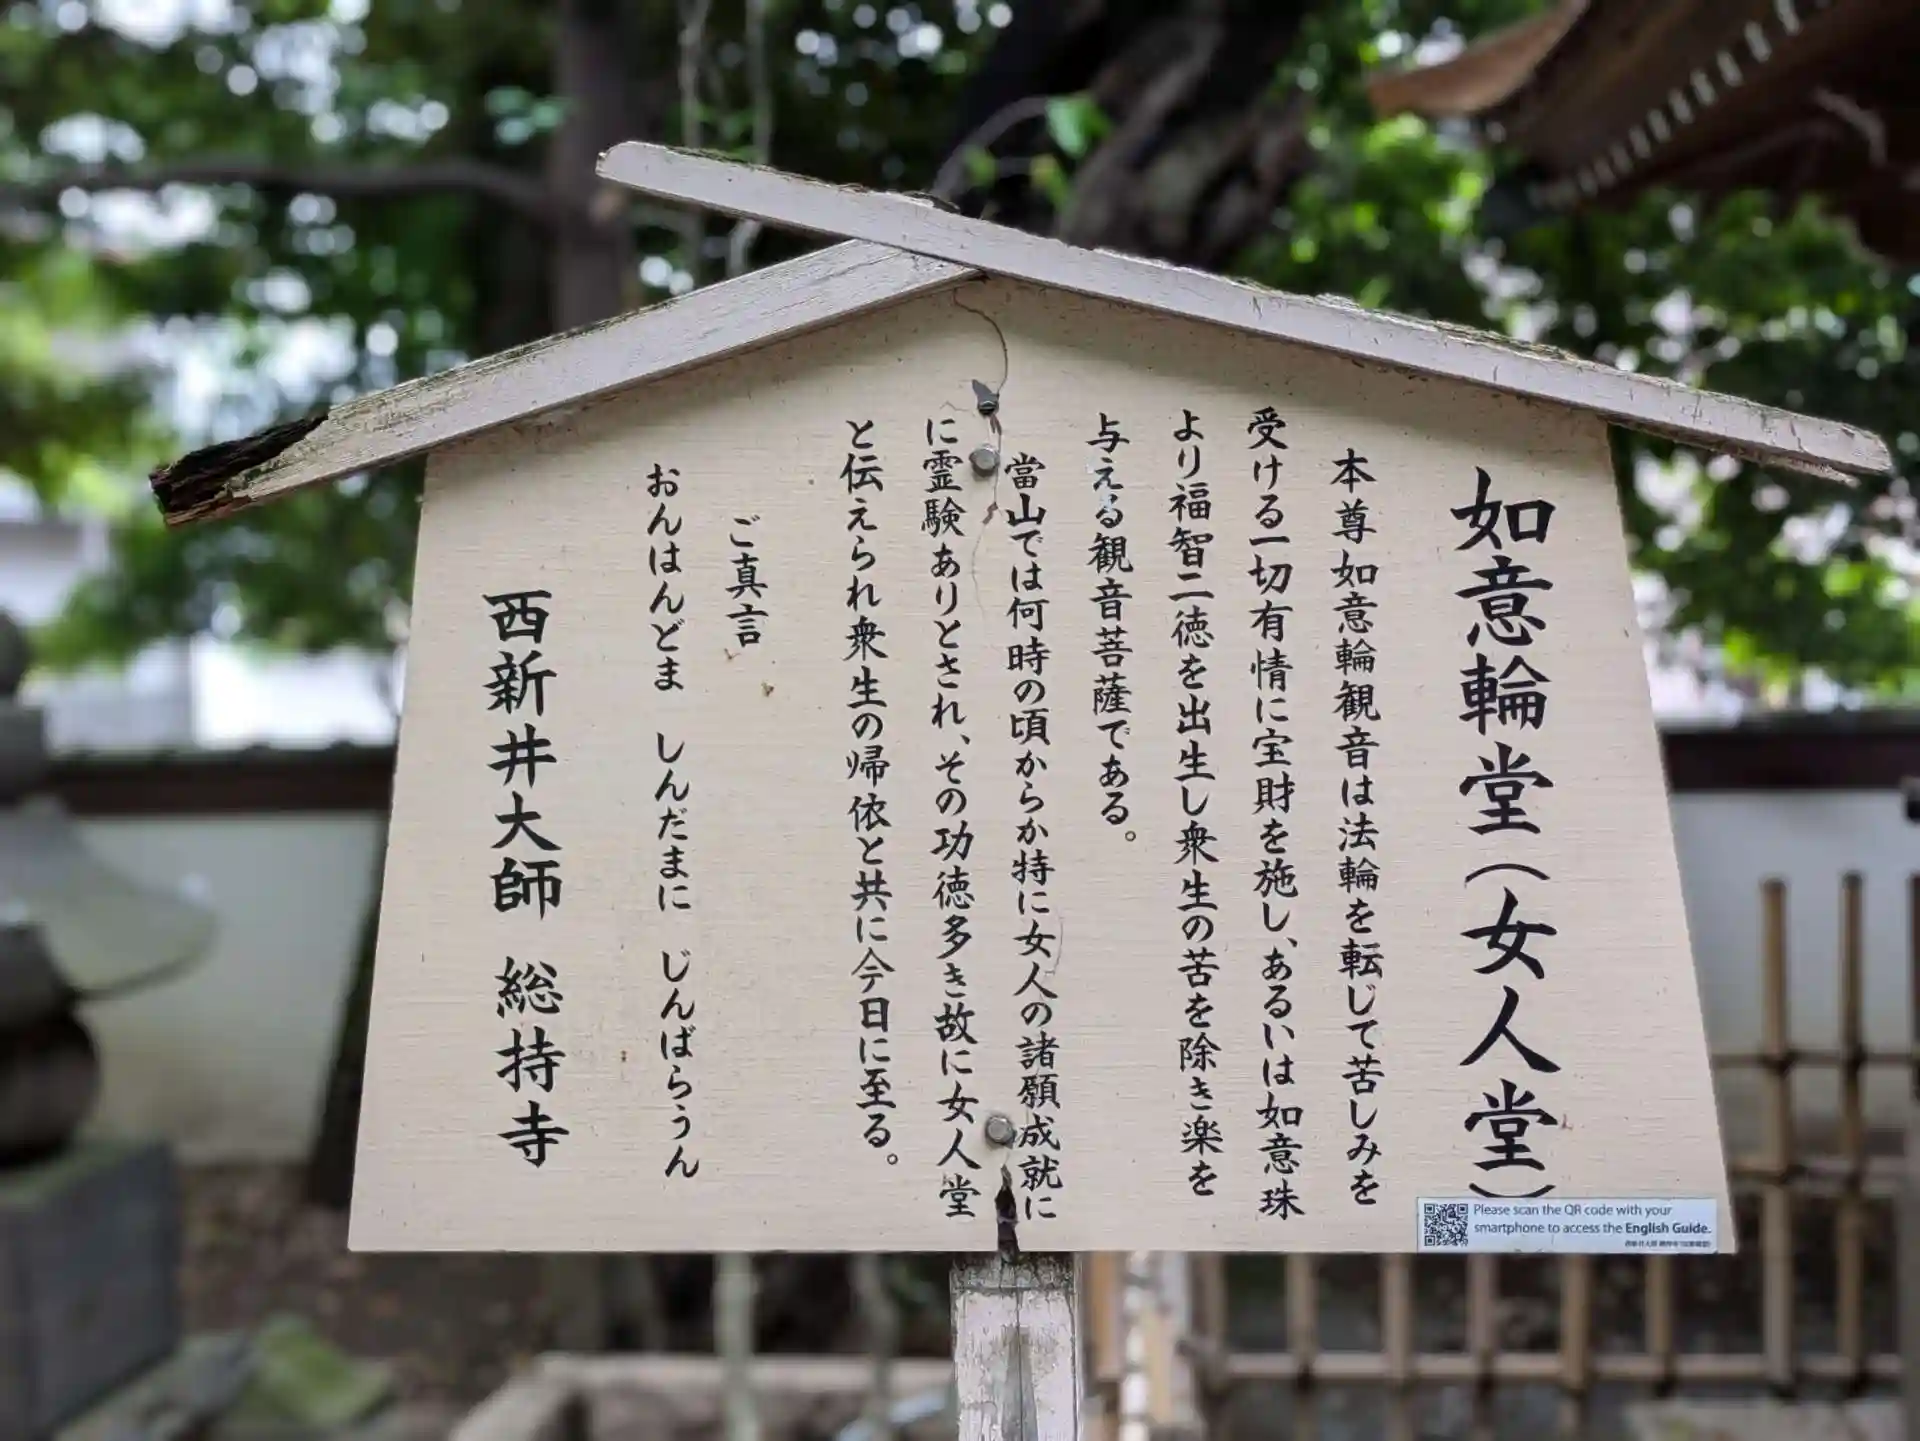 如意輪堂(女人堂)
本尊如意輪観音は法輪を転じて苦しみを
受ける一切有情に宝財を施し、あるいは如意珠
より福智二徳を出生し衆生の苦を除き楽を
与える観音菩薩である。
當山では何時の頃からか特に女人の諸願成就に
に霊験ありとされ、その功徳多き故に女人堂
と伝えられ衆生の帰依と共に今日に至る。
ご真言
おんはんどま しんだまに じんばらうん
西新井大師 総持寺
Please scan the QR code with your
smartphone to access the English Guide.